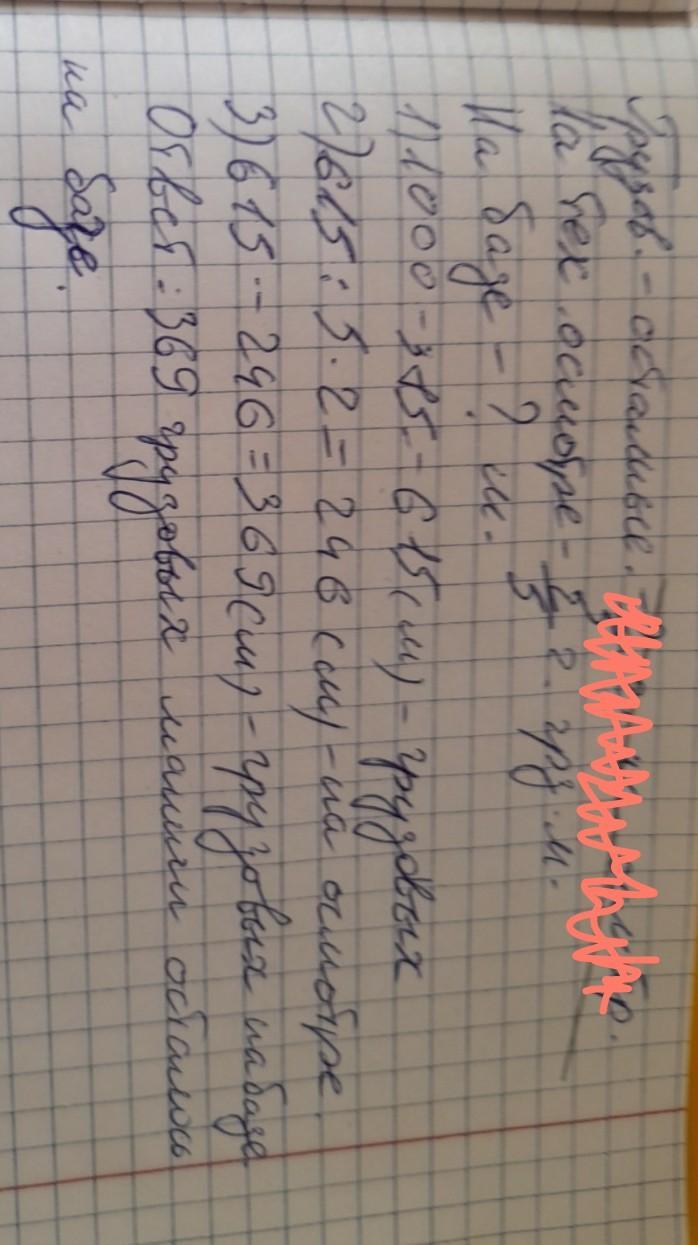 Грузов. - остальные.
На тех. осмотре - 2/5 ? груз. м.
На базе - ? м.
1) 1000 - 385 = 615 (м) - грузовых
2) 615 : 5 · 2 = 246 (м) - на осмотре.
3) 615 - 246 = 369 (м) - грузовых на базе
Ответ: 369 грузовых машин осталось
на базе.